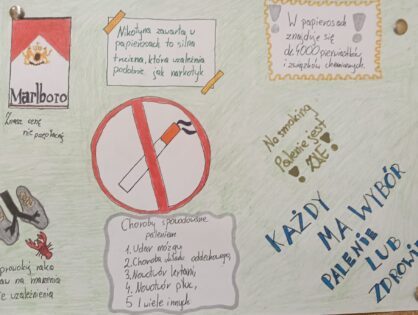 Marlboro
Znasz cenę
nie
Nikotyna zawarta w
papierosach to silna
trucizna, która uzależnia
podobnie, jak narkotyk
W papierosach
znajduje się
ok 4000 pierwiastków
i związków chemicznych.
No smoking
Palenie jest
! ZŁE!
Choroby spowodowane
paleniem
1. Udar mózgu
2. Choroba układu oddechowego,
3. Nowotwór krtani,
4. Nowotwór płuc,
5. I wiele innych
KAŻDY
MA WYBÓR
PALENIE LUB
ZDROWIE
raka
na marzenia
uzależnienia